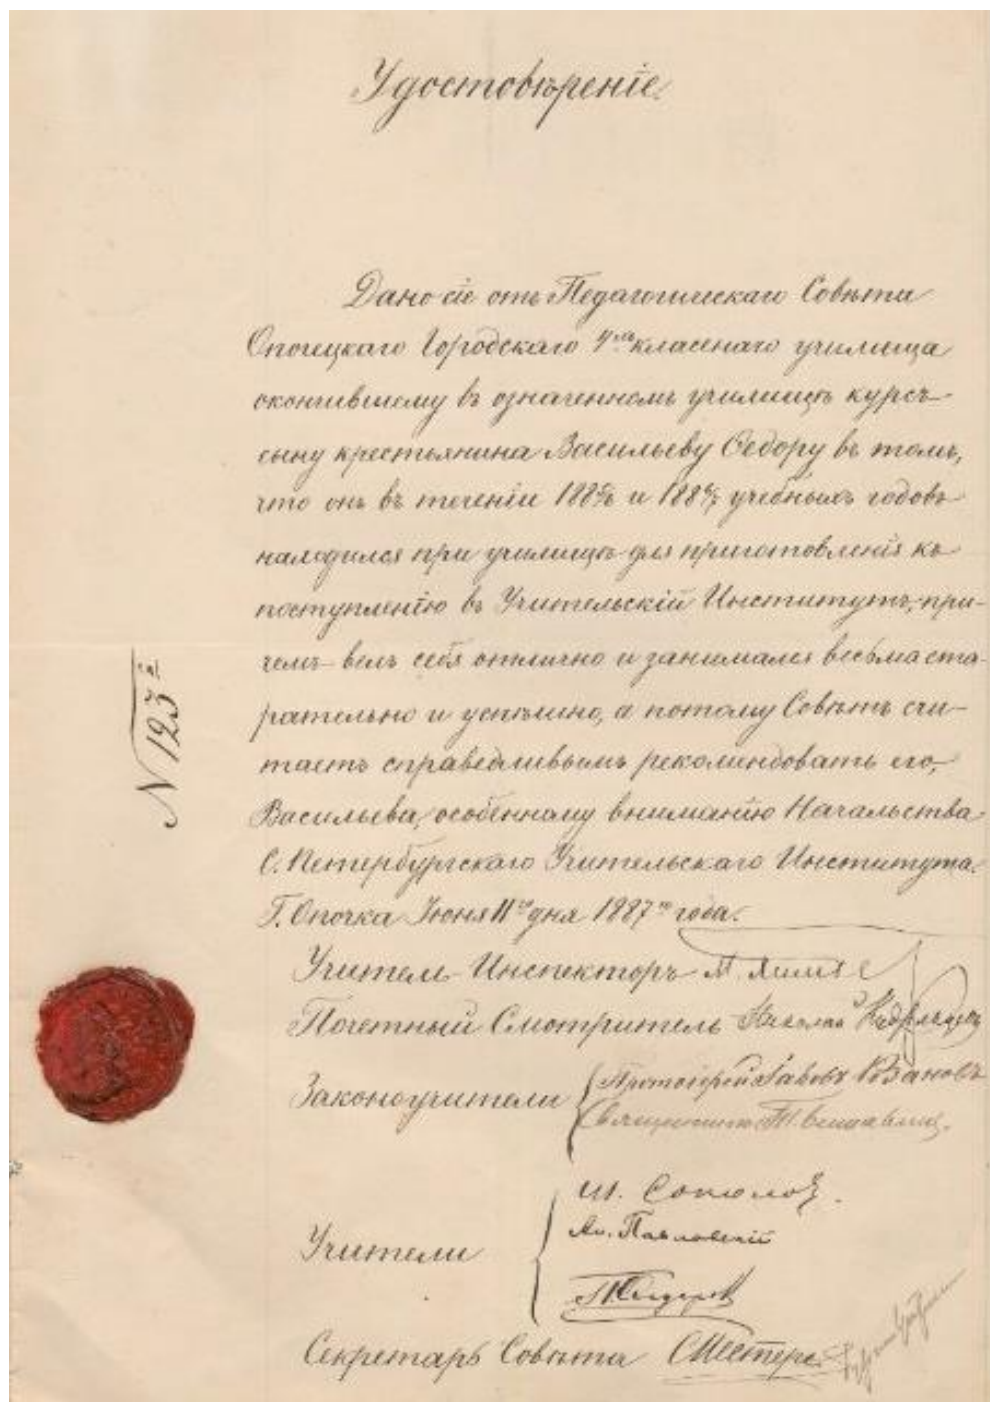 Удостовѣреніе.
Дано сіе отъ Педагогическаго Совѣта
Опочецкаго Городскаго 4хъ класснаго училища
окончившему въ означенномъ училищѣ курсъ
сыну крестьянина Васильеву Ѳедору въ томъ,
что онъ въ теченіи 1885/6 и 1886/7 учебныхъ годовъ
находился при училищѣ для приготовленія къ
поступленію въ Учительскій Институтъ, при-
чемъ велъ себя отлично и занимался весьма ста-
рательно и успѣшно, а потому Совѣтъ счи-
таетъ справедливымъ рекомендовать его,
Васильева, особенному вниманію Начальства
С. Петербургскаго Учительскаго Института.
Г. Опочка Іюня 11го дня 1887го года.
N 123й
Учитель Инспекторъ М.
Почетный Смотритель Николай
Законоучители { Протоіерей Павелъ
Священникъ
И. Соколовъ.
Ал. Павловскій
Учители {
Секретарь Совѣта